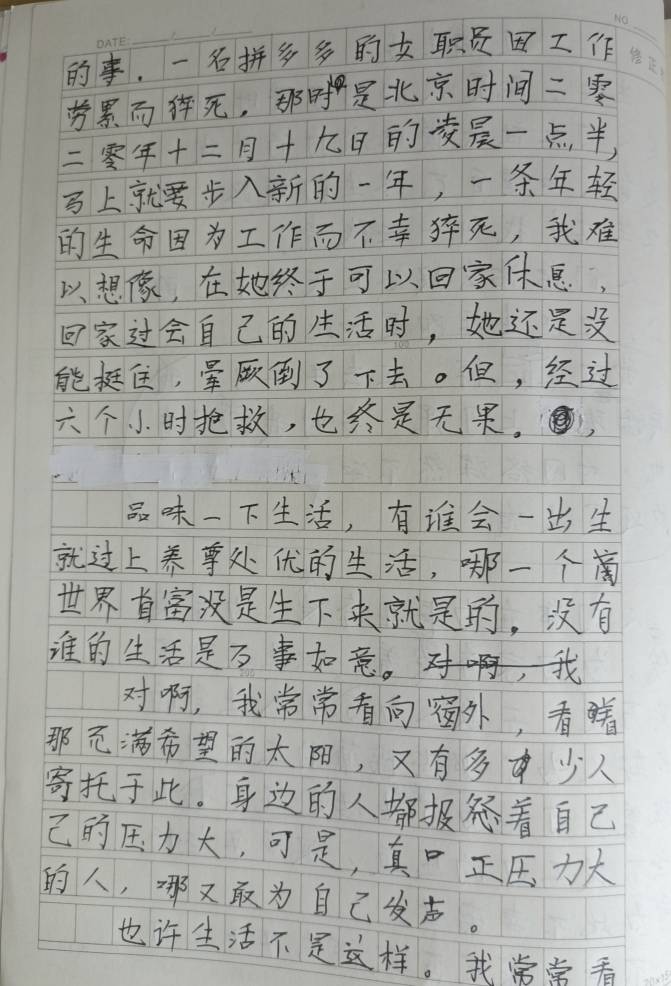 DATE: / / NO
修正
的事。一名拼多多的女职员因工作
劳累而猝死。那时是北京时间二零
二零年十二月十九日的凌晨一点半,
马上就要步入新的一年,一条年轻
的生命因为工作而不幸猝死,我难
以想像,在她终于可以回家休息,
回家过会自己的生活时,她还是没
能挺住,晕厥倒了下去。但,经过
六个小时抢救,也终是无果。,
品味一下生活,有谁会一出生
就过上养尊处优的生活,哪一个
世界首富没是生下来就是的,没有
谁的生活是万事如意。对啊,我
对啊,我常常看向窗外,看着
那充满希望的太阳,又有多少人
寄托于此。身边的人都报怨着自己
己的压力大,可是,真口正压力大
的人,哪又敢为自己发声。
也许生活不是这样。我常常看